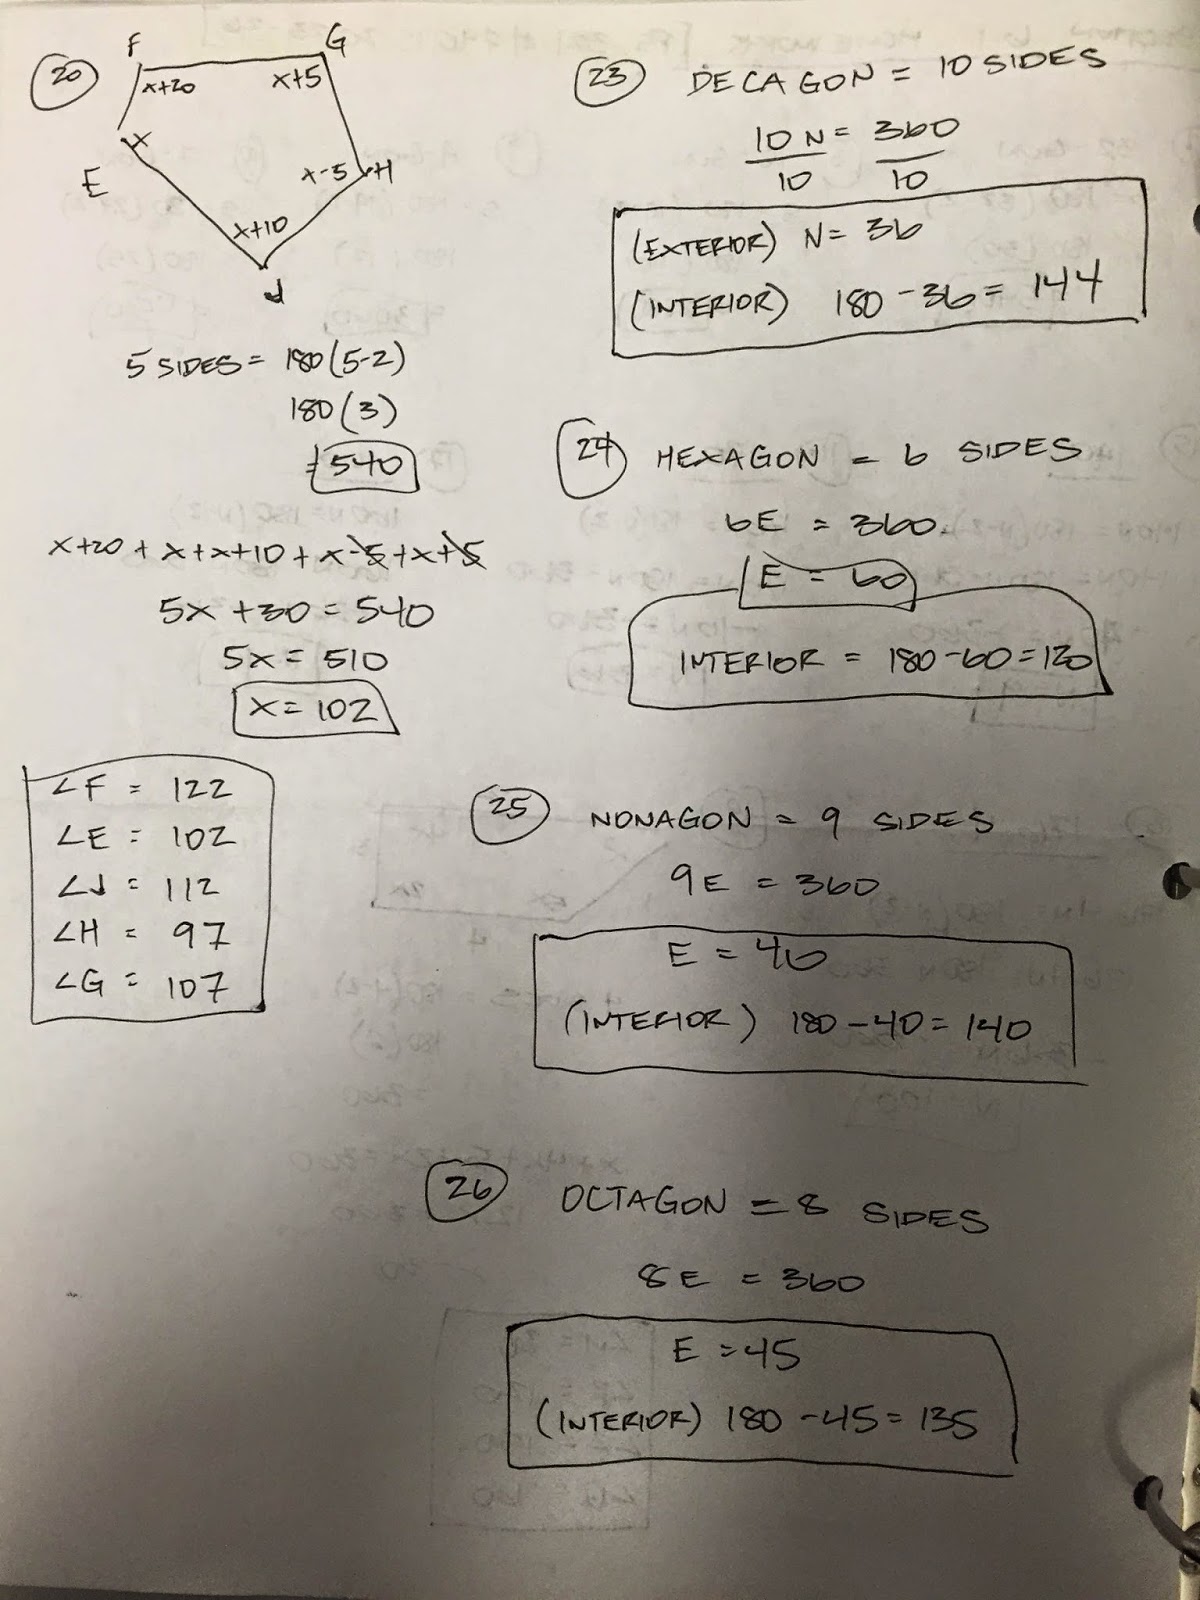 20
F
G
x+20
x+5
x
E
x-5
H
x+10
J
5 SIDES = 180(5-2)
180(3)
=540
x+20 + x+x+10 + x-5+x+5
5x +30 = 540
5x = 510
x= 102
∠F = 122
∠E = 102
∠J = 112
∠H = 97
∠G = 107
23 DECAGON = 10 SIDES
10N = 360
10 10
(EXTERIOR) N= 36
(INTERIOR) 180 -36 = 144
24 HEXAGON = 6 SIDES
6E = 360
E = 60
INTERIOR = 180-60=120
25 NONAGON = 9 SIDES
9E = 360
E = 40
(INTERIOR) 180-40=140
26 OCTAGON = 8 SIDES
8E = 360
E =45
(INTERIOR) 180 -45=135